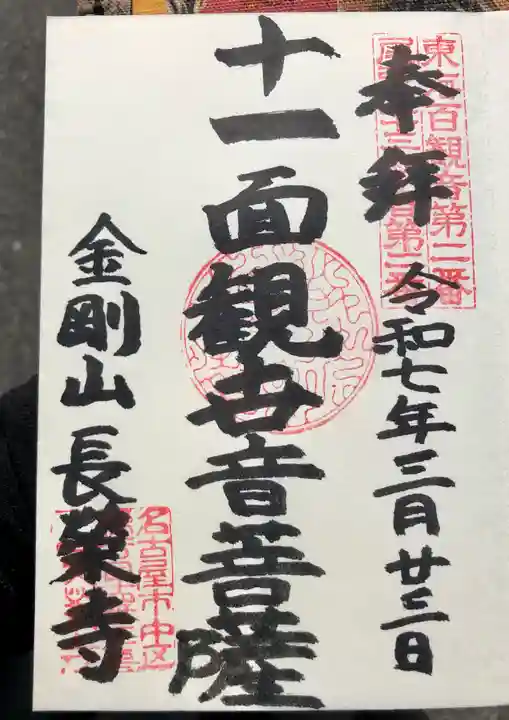 東海百観音第二番
奉拜
令和七年三月廿三日
十一面観世音菩薩
金剛山長榮寺
名古屋市中区